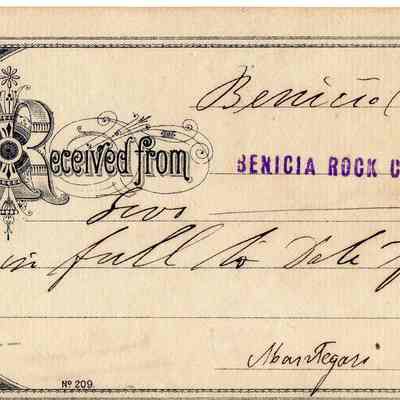 Benicia
Received from BENICIA ROCK C
Two
in full to Date
No 209